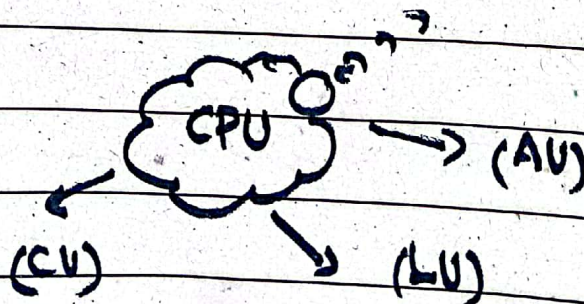 CPU
(AU)
(CU) (LU)